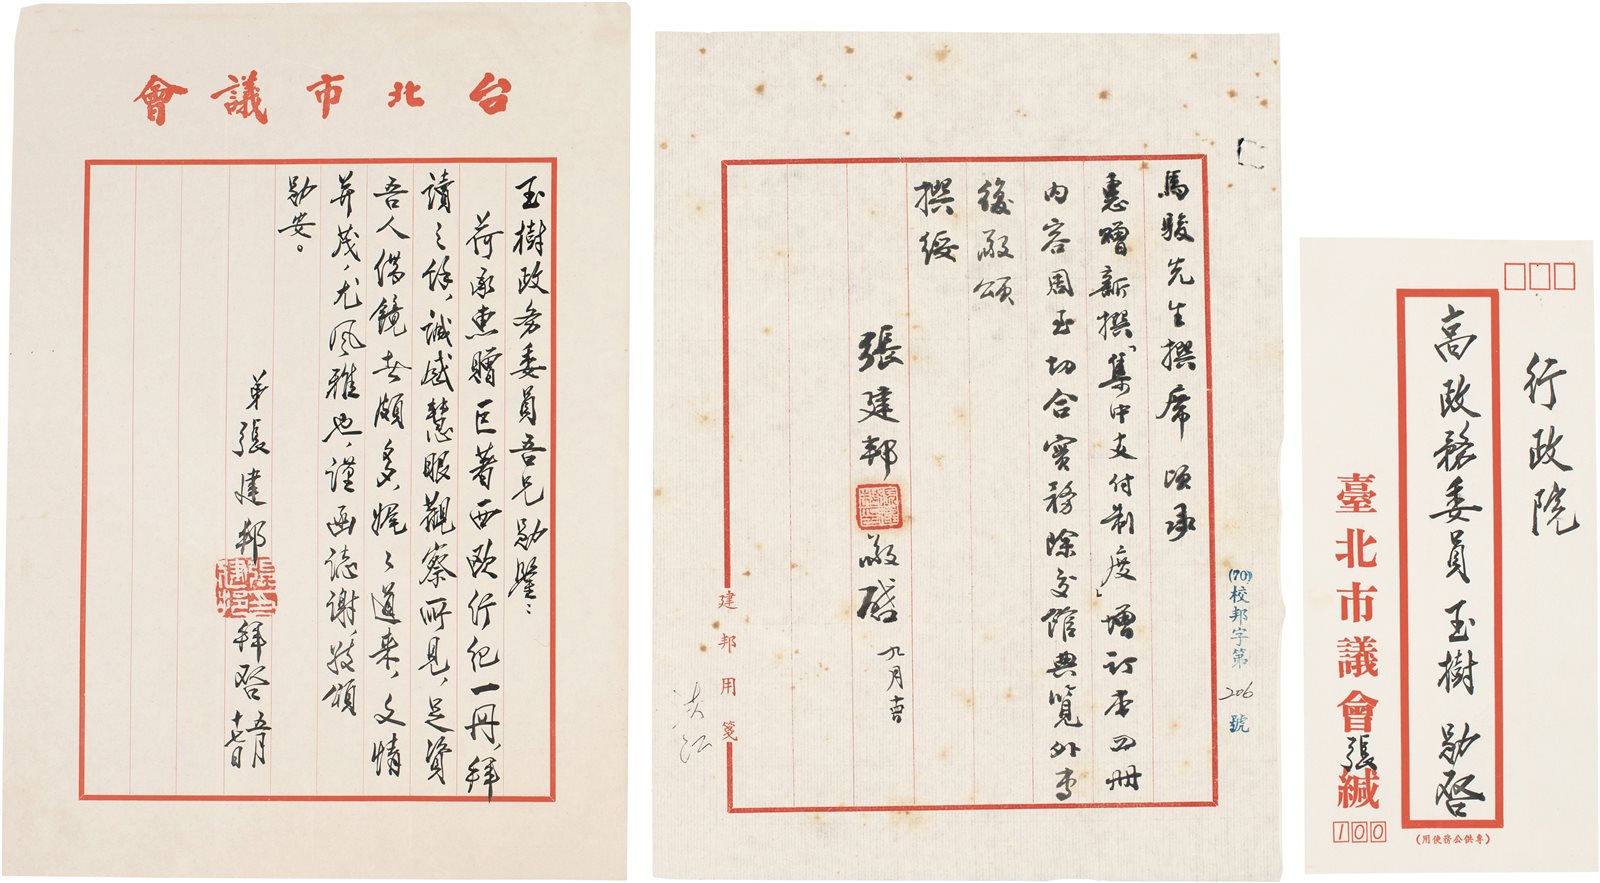 台北市議會
玉樹政務委員吾兄勛鑒：
荷承惠贈巨著西歐行紀一冊，拜
讀之餘，誠感慧眼觀察所見，足資
吾人借鏡者頗多，娓々道來，文情
并茂，尤風雅也，謹函誌謝，敬頌
勛安。
弟張建邦拜啓 五月十七日
(70)校邦字第206號
馬駿先生撰席 頃承
惠贈新撰「集中支付制度」增訂本四冊
內容周至切合實務除交館典覽外專
復敬頌
撰綏
張建邦 敬啓 九月
建邦用箋
行政院
高政務委員玉樹 勛啓
臺北市議會張緘
100
(專供公務使用)